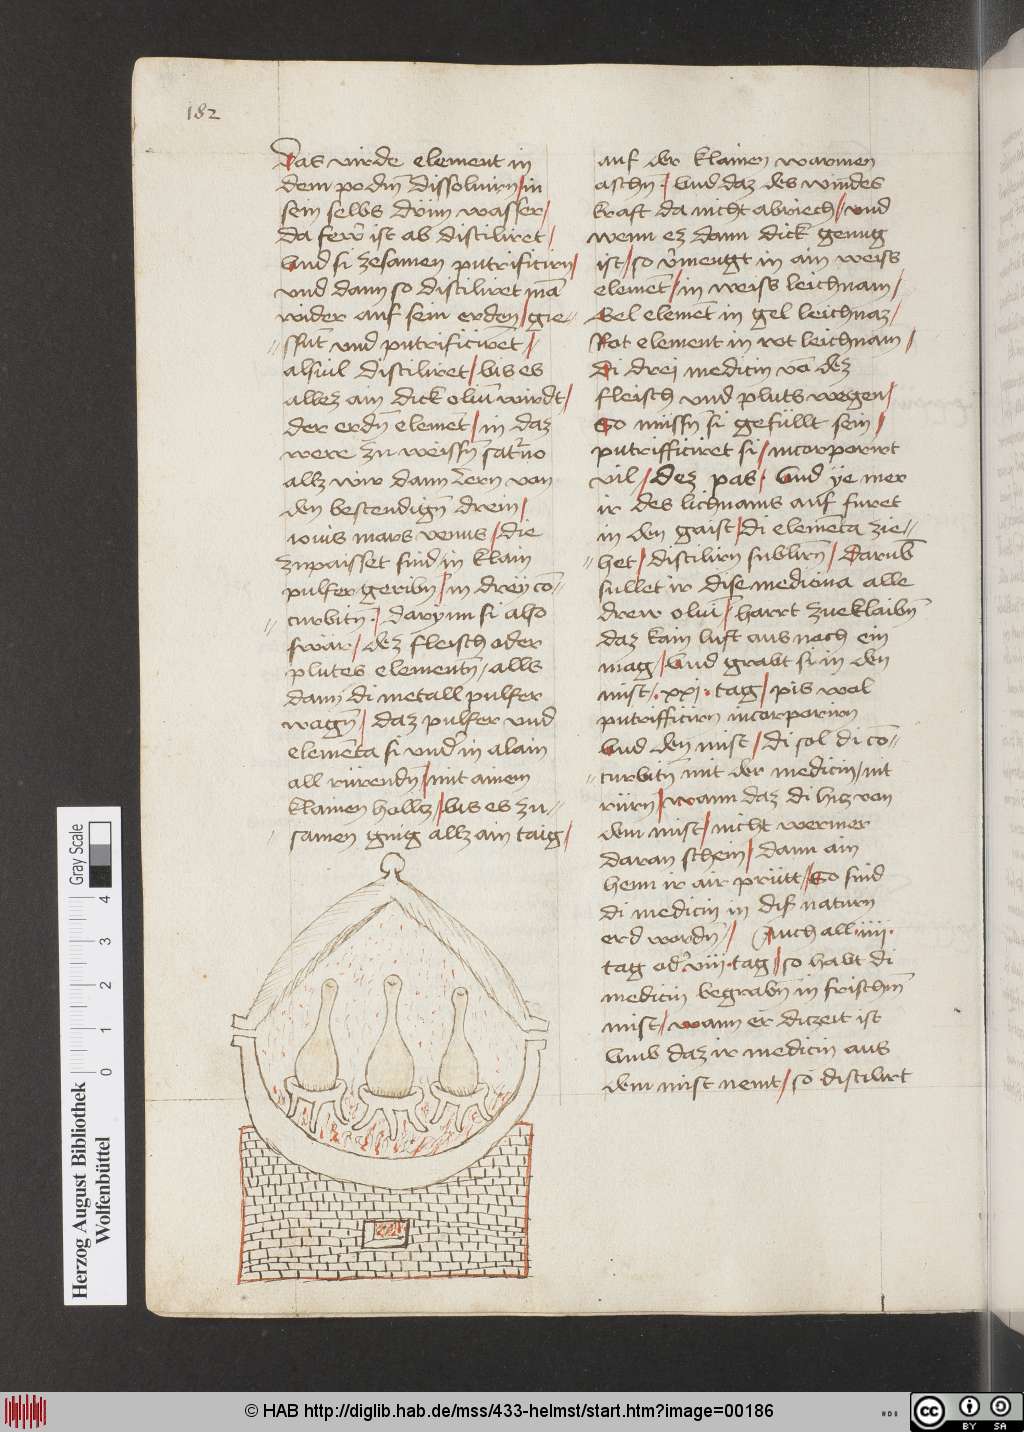 182
Das virde element in
dem podm̄ dissoluirn / in
sein selbs dritm wasser /
da fewr ist ab distiliret /
Vnd si zesamen putrificirn /
vnd dann so distiliret mā
wider auf sein erden / gie-
ssūt vnd putrificirēt /
alsuil distiliret / bis es
allez am dick oliū wirdt /
der erdn̄ elemēt / in daz
were zu weissn̄ saturno
allz wir dann lern von
den bestendign̄ drein /
iouis mars venus / die
zupaisset sind in klain
pulfer geribn̄ / in dreÿ co-
curbitn̄ . / darynn si also
swär / dez fleisch oder
plutes elementn̄ / alls
dann di metall pulfer
wagn̄ / daz pulfer vnd
elemēta si vnd in alain
all rürendn̄ / mit ainem
klainen holtz / bis es zu-
samen gnig allz ain taig /
auf der klainen warmen
aschn̄ . / Vnd daz des windes
kraft da nicht abriech / vnd
wenn ez dann dick genug
ist / so v̄mengt in ain weiss
elemēt / in weiss leichnam /
Gel elemēt in gel leichnaz /
Rot element in rot leichnam /
Di drei medicin vō dez
fleisch vnd pluts wegen /
So müssn̄ si gefüllt sein /
putrifficiret si / incorporirt
vil / dez pas . Vnd ÿe mer
ir des lichnams auf furet
in den gaist / di elemēta zie-
het / distilirn sublirn̄ / Darub̄
sullet ir dise medicina alle
drew oliū / hartt zueklaibn̄
daz kain luft aus noch ein
mag / Vnd grabt si in den
mist / . xxi . tag / pis wol
putrifficirn incorporirn
Vnd den mist / di sol di co-
curbitn̄ mit der medicin / nit
rürn / wann daz di hiz von
dem mist / nicht wermer
daran schein / dann ain
henn ir air prütt / So sind
di medicin in dis naturn
erd wordn̄ / Auch all . iiii .
tag od̄ viii . tag / so habt di
medicin begrabn in frischm̄
mist / wann er diczeit ist
Vmb daz ir medicin aus
dem mist nemt / so distilirt
Herzog August Bibliothek
Wolfenbüttel
Gray Scale
0 1 2 3 4
© HAB http://diglib.hab.de/mss/433-helmst/start.htm?image=00186
cc BY SA